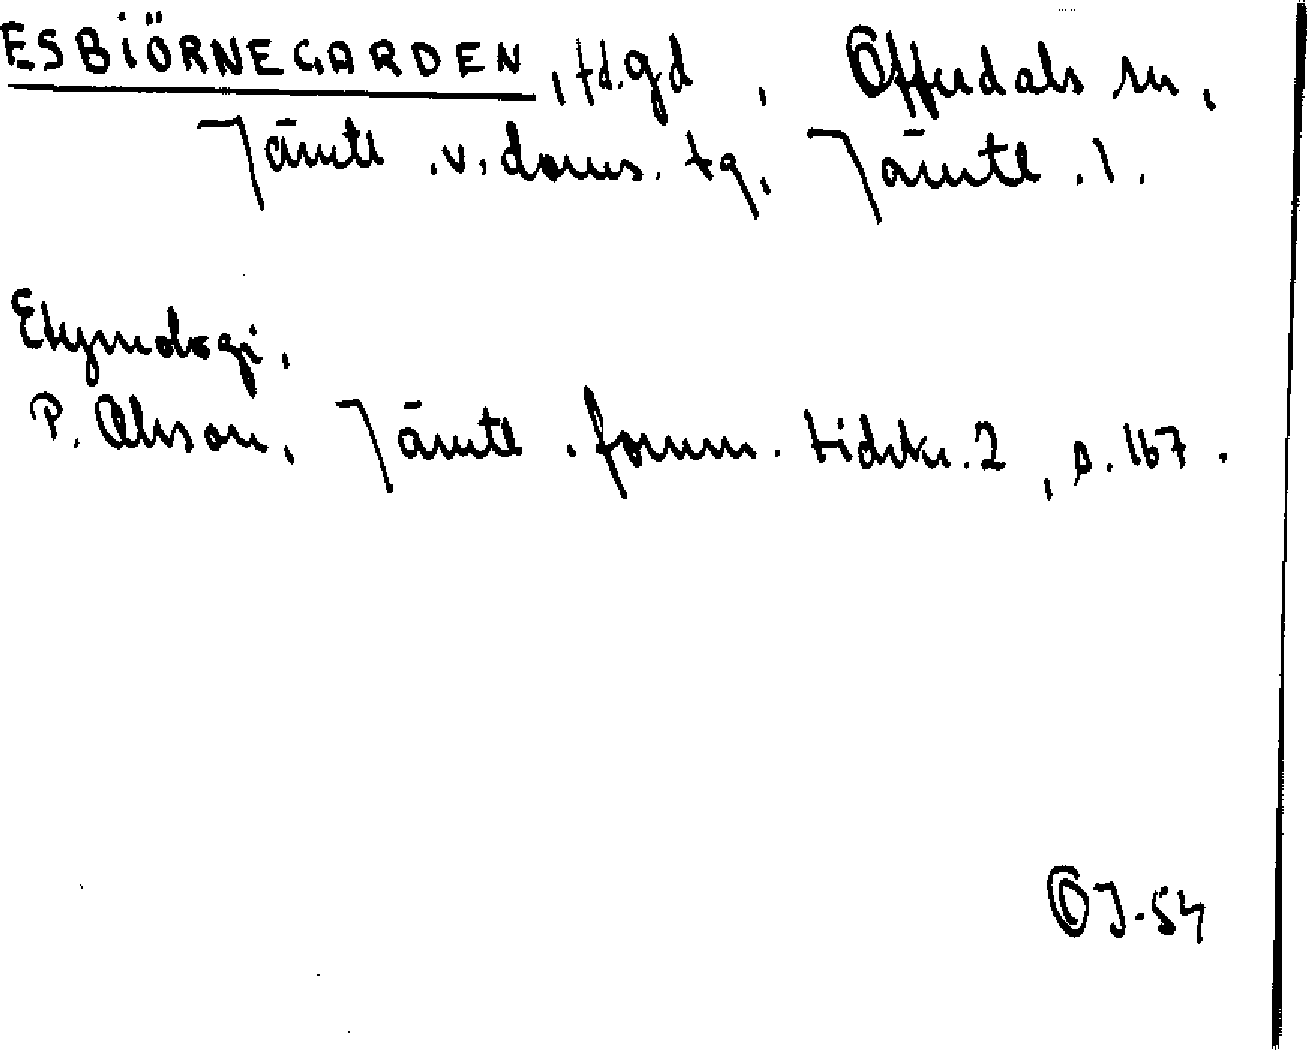 ESBIÖRNEGARDEN, fd. gd, Offerdals sn,
Jämtl. v. doms. tg, Jämtl. l.
Etymologi.
P. Olsson, Jämtl. fornm. tidskr. 2, s. 167.
OJ-54